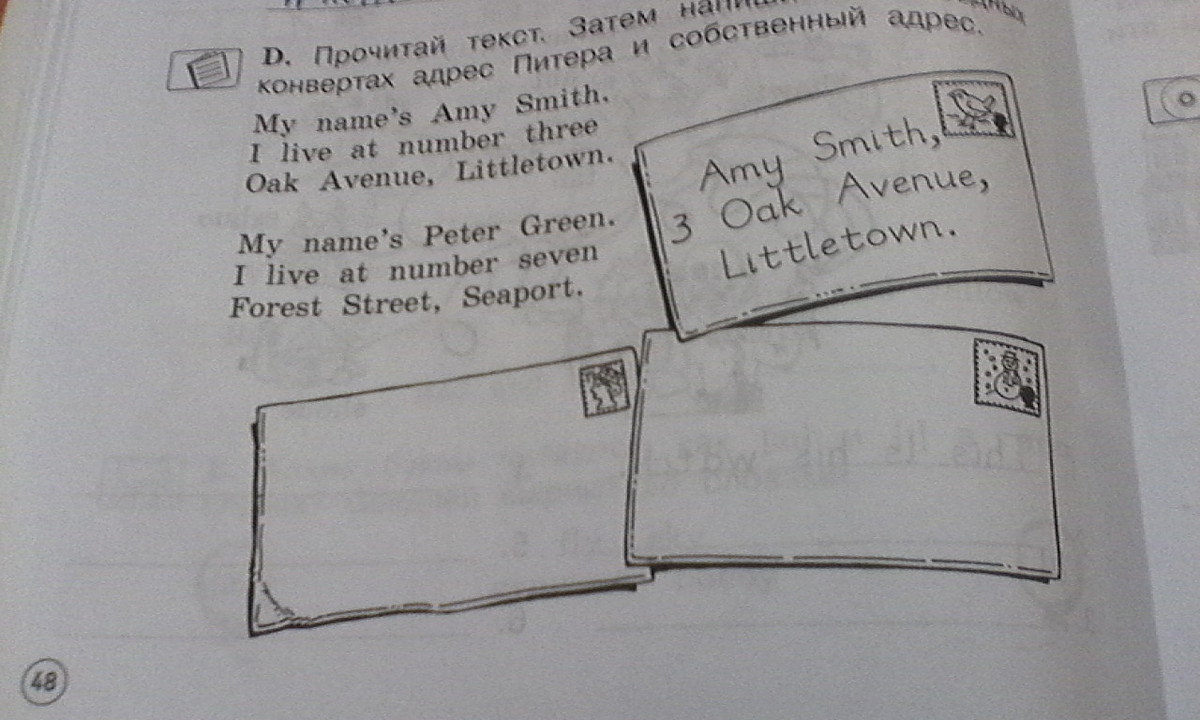 D. Прочитай текст. Затем
конвертах адрес Питера и собственный адрес.
My name's Amy Smith.
I live at number three
Oak Avenue, Littletown.
My name's Peter Green.
I live at number seven
Forest Street, Seaport.
Amy Smith,
3 Oak Avenue,
Littletown.
48